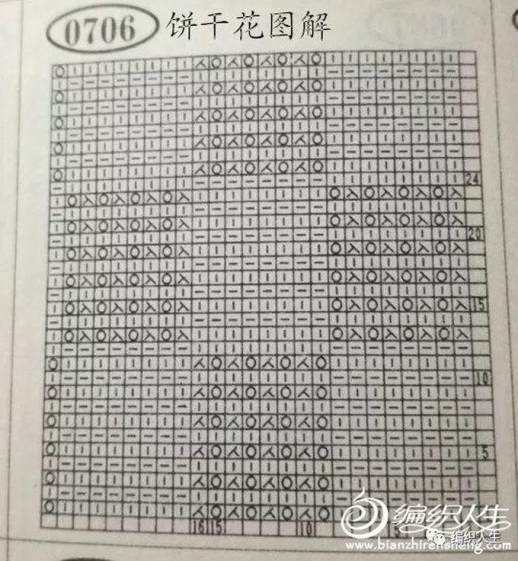 0706 饼干花图解
24
20
15
10
5
16 15 10
编织人生
编织人生
www.bianzhirensheng.com